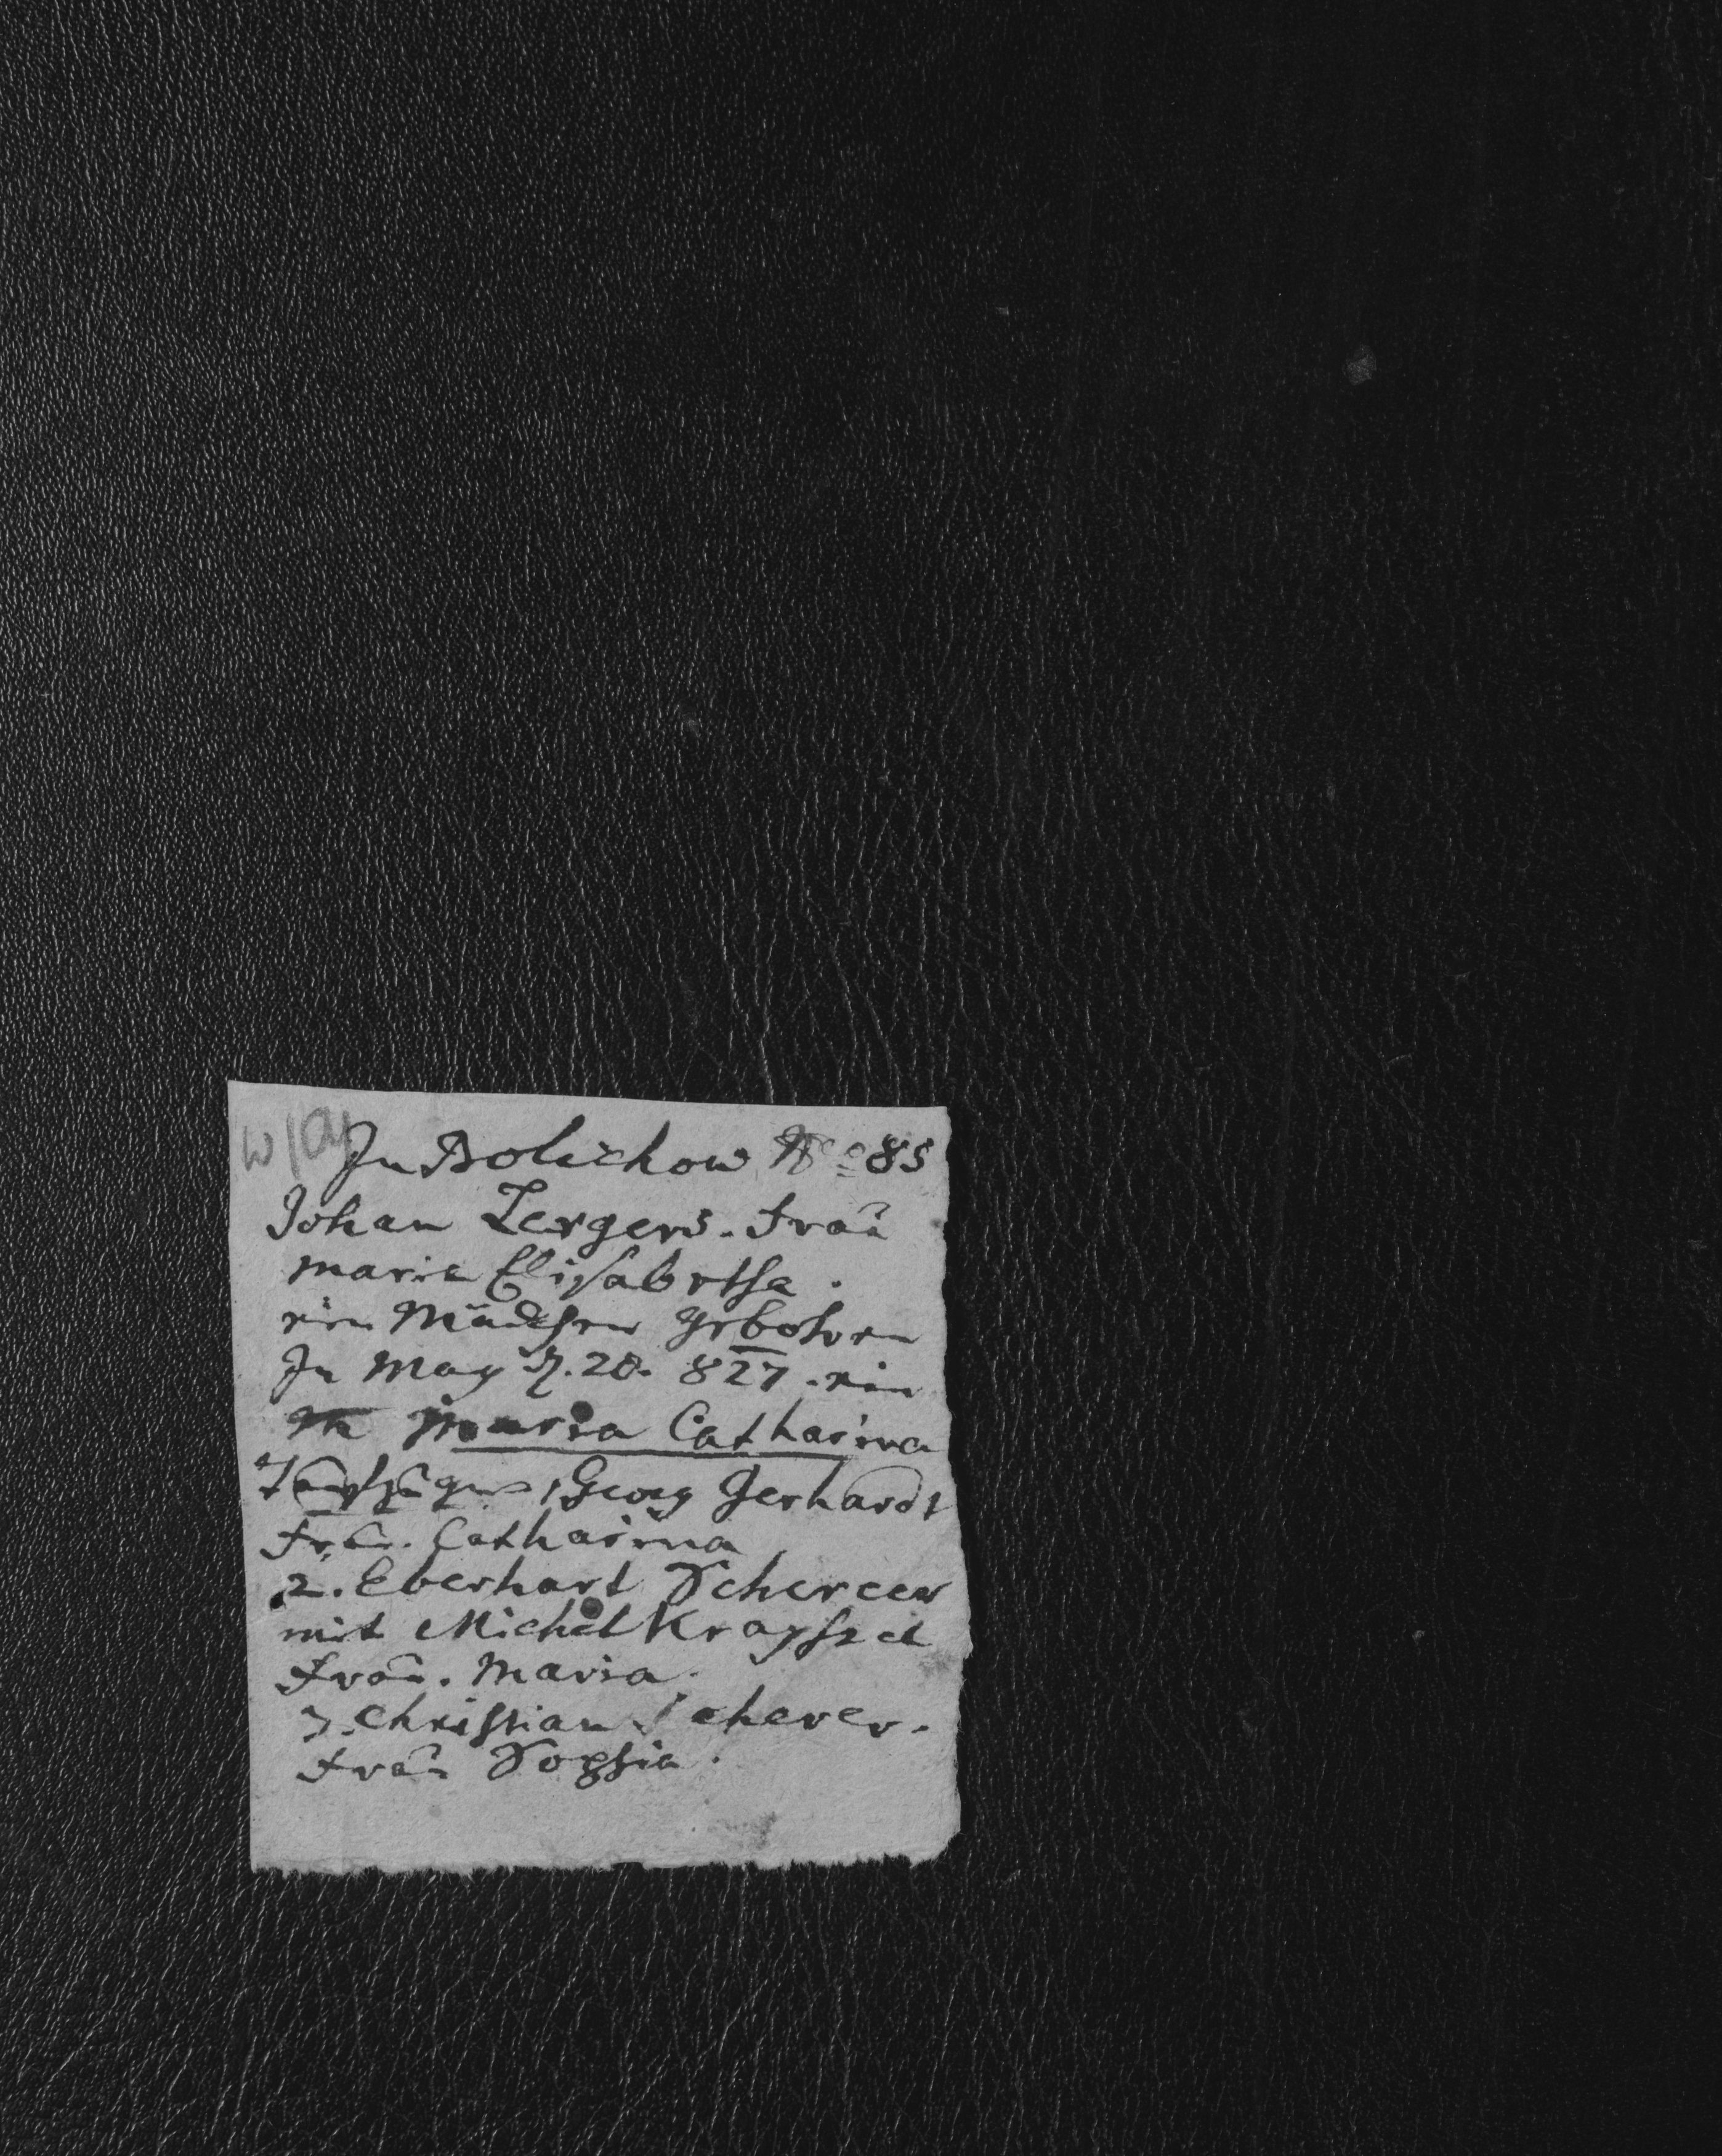 In Bolichow No 85
Johan Zergers. Frau
maria Elisabetha.
ein Mädchen gebohren
In May d. 28. 827. ein
Maria Catharina
Taufzeugen 1 Georg Gerhardt
Frau. Catharina
2. Eberhart Schereer
mit Michel Krayszel
Frau. Maria.
3. Christian Scherer.
Frau Sophia.